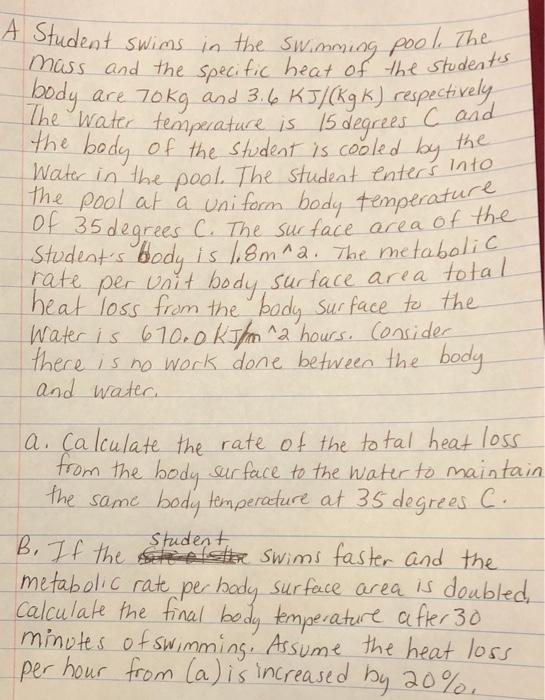 A Student swims in the swimming pool. The
mass and the specific heat of the student's
body are 70kg and 3.6 KJ/(kgK) respectively
The water temperature is 15 degrees C and
the body of the student is cooled by the
Water in the pool. The student enters into
the pool at a uniform body temperature
of 35 degrees C. The surface area of the
Student's body is 1.8m^2. The metabolic
rate per unit body surface area total
heat loss from the body surface to the
Water is 670.0 KJ/m^2 hours. Consider
there is no work done between the body
and water.
a. Calculate the rate of the total heat loss
from the body surface to the water to maintain
the same body temperature at 35 degrees C.
B. If the Student swims faster and the
metabolic rate per body surface area is doubled,
Calculate the final body temperature after 30
minutes of swimming. Assume the heat loss
per hour from (a) is increased by 20%.